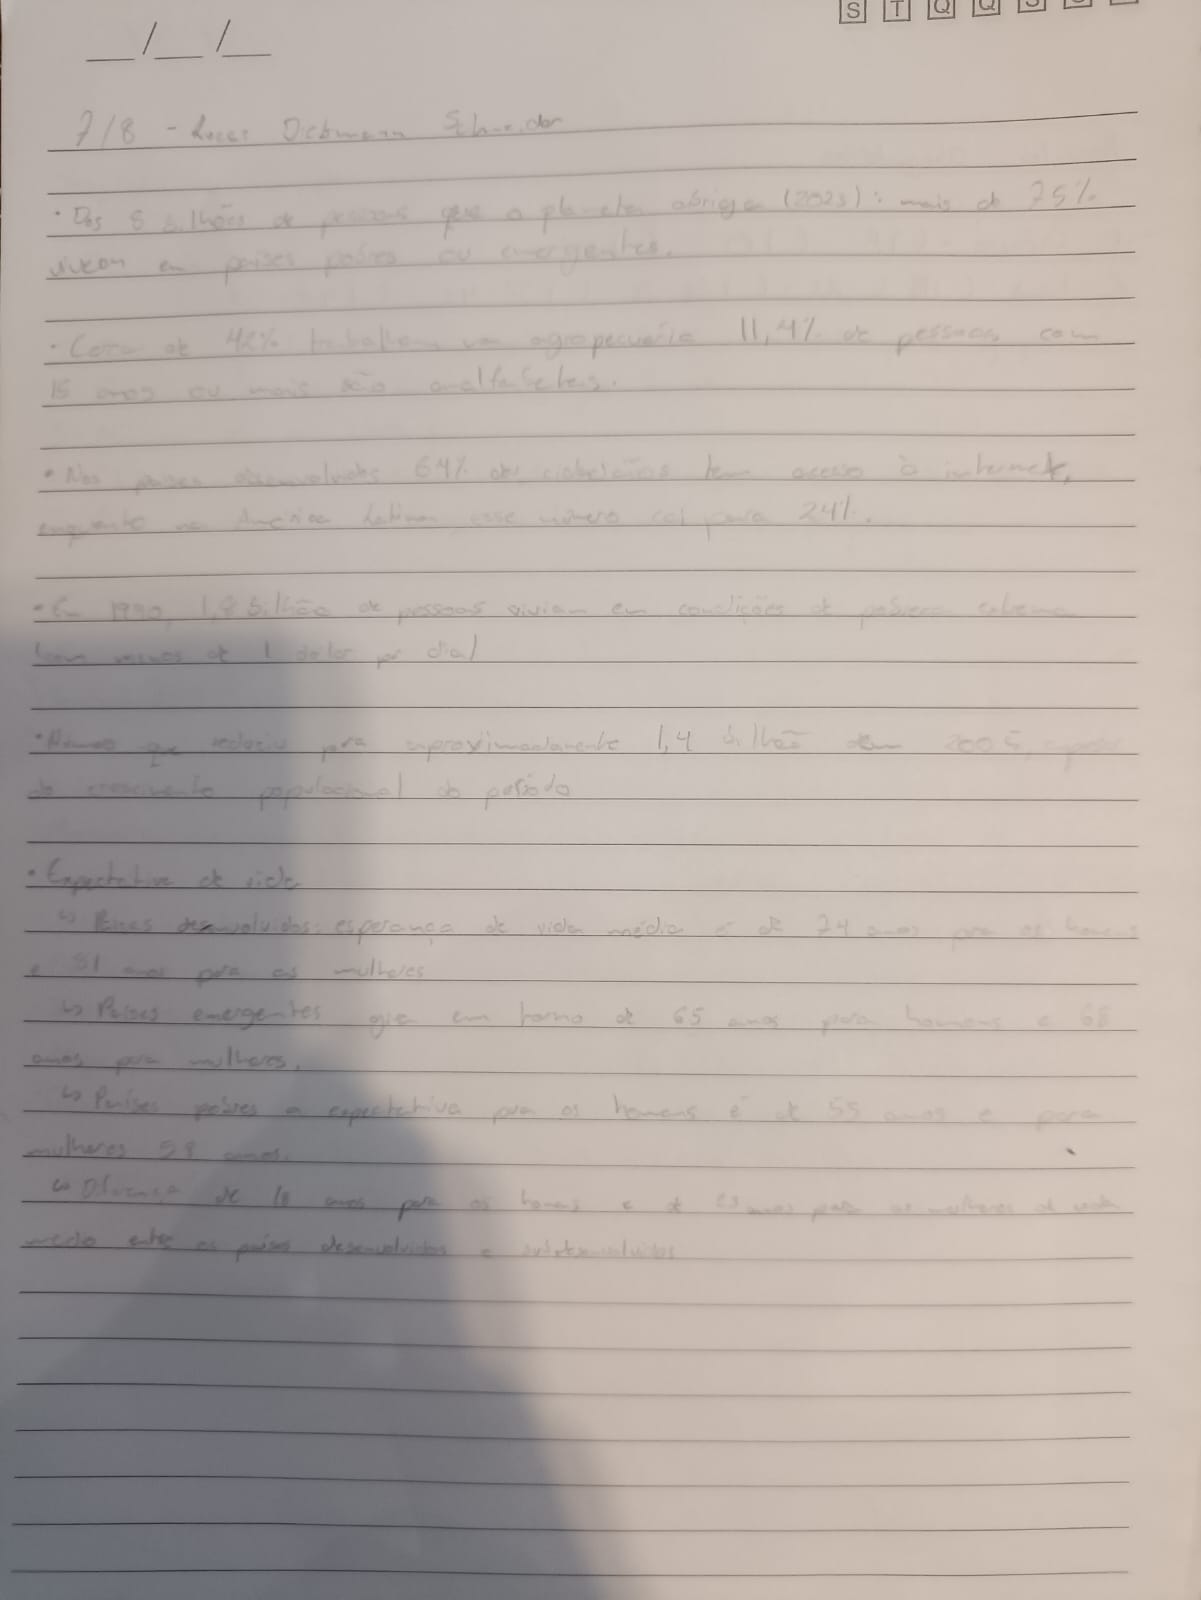 S T Q Q S S
__/__/__
7/8 - Lucas Diekmann Schneider
• Dos 8 bilhões de pessoas que o planeta abriga (2023): mais de 75%
vivem em países pobres ou emergentes.
• Cerca de 42% trabalham na agropecuária 11,4% de pessoas com
15 anos ou mais são analfabetas.
• Nos países desenvolvidos 64% dos cidadãos tem acesso à internet,
enquanto na América Latina esse número cai para 24%.
• Em 1990, 1,8 bilhão de pessoas viviam em condições de pobreza extrema
com menos de 1 dolar por dia
• Número que reduziu para aproximadamente 1,4 bilhão em 2005, apesar
do crescimento populacional do período
• Expectativa de vida
↳ Países desenvolvidos: esperança de vida média é de 74 anos para os homens
e 81 anos para as mulheres
↳ Países emergentes gira em torno de 65 anos para homens e 68
anos para mulheres.
↳ Países pobres a expectativa para os homens é de 55 anos e para
mulheres 58 anos.
↳ Diferença de anos para os homens e de 23 anos para as mulheres de
entre os países desenvolvidos e subdesenvolvidos